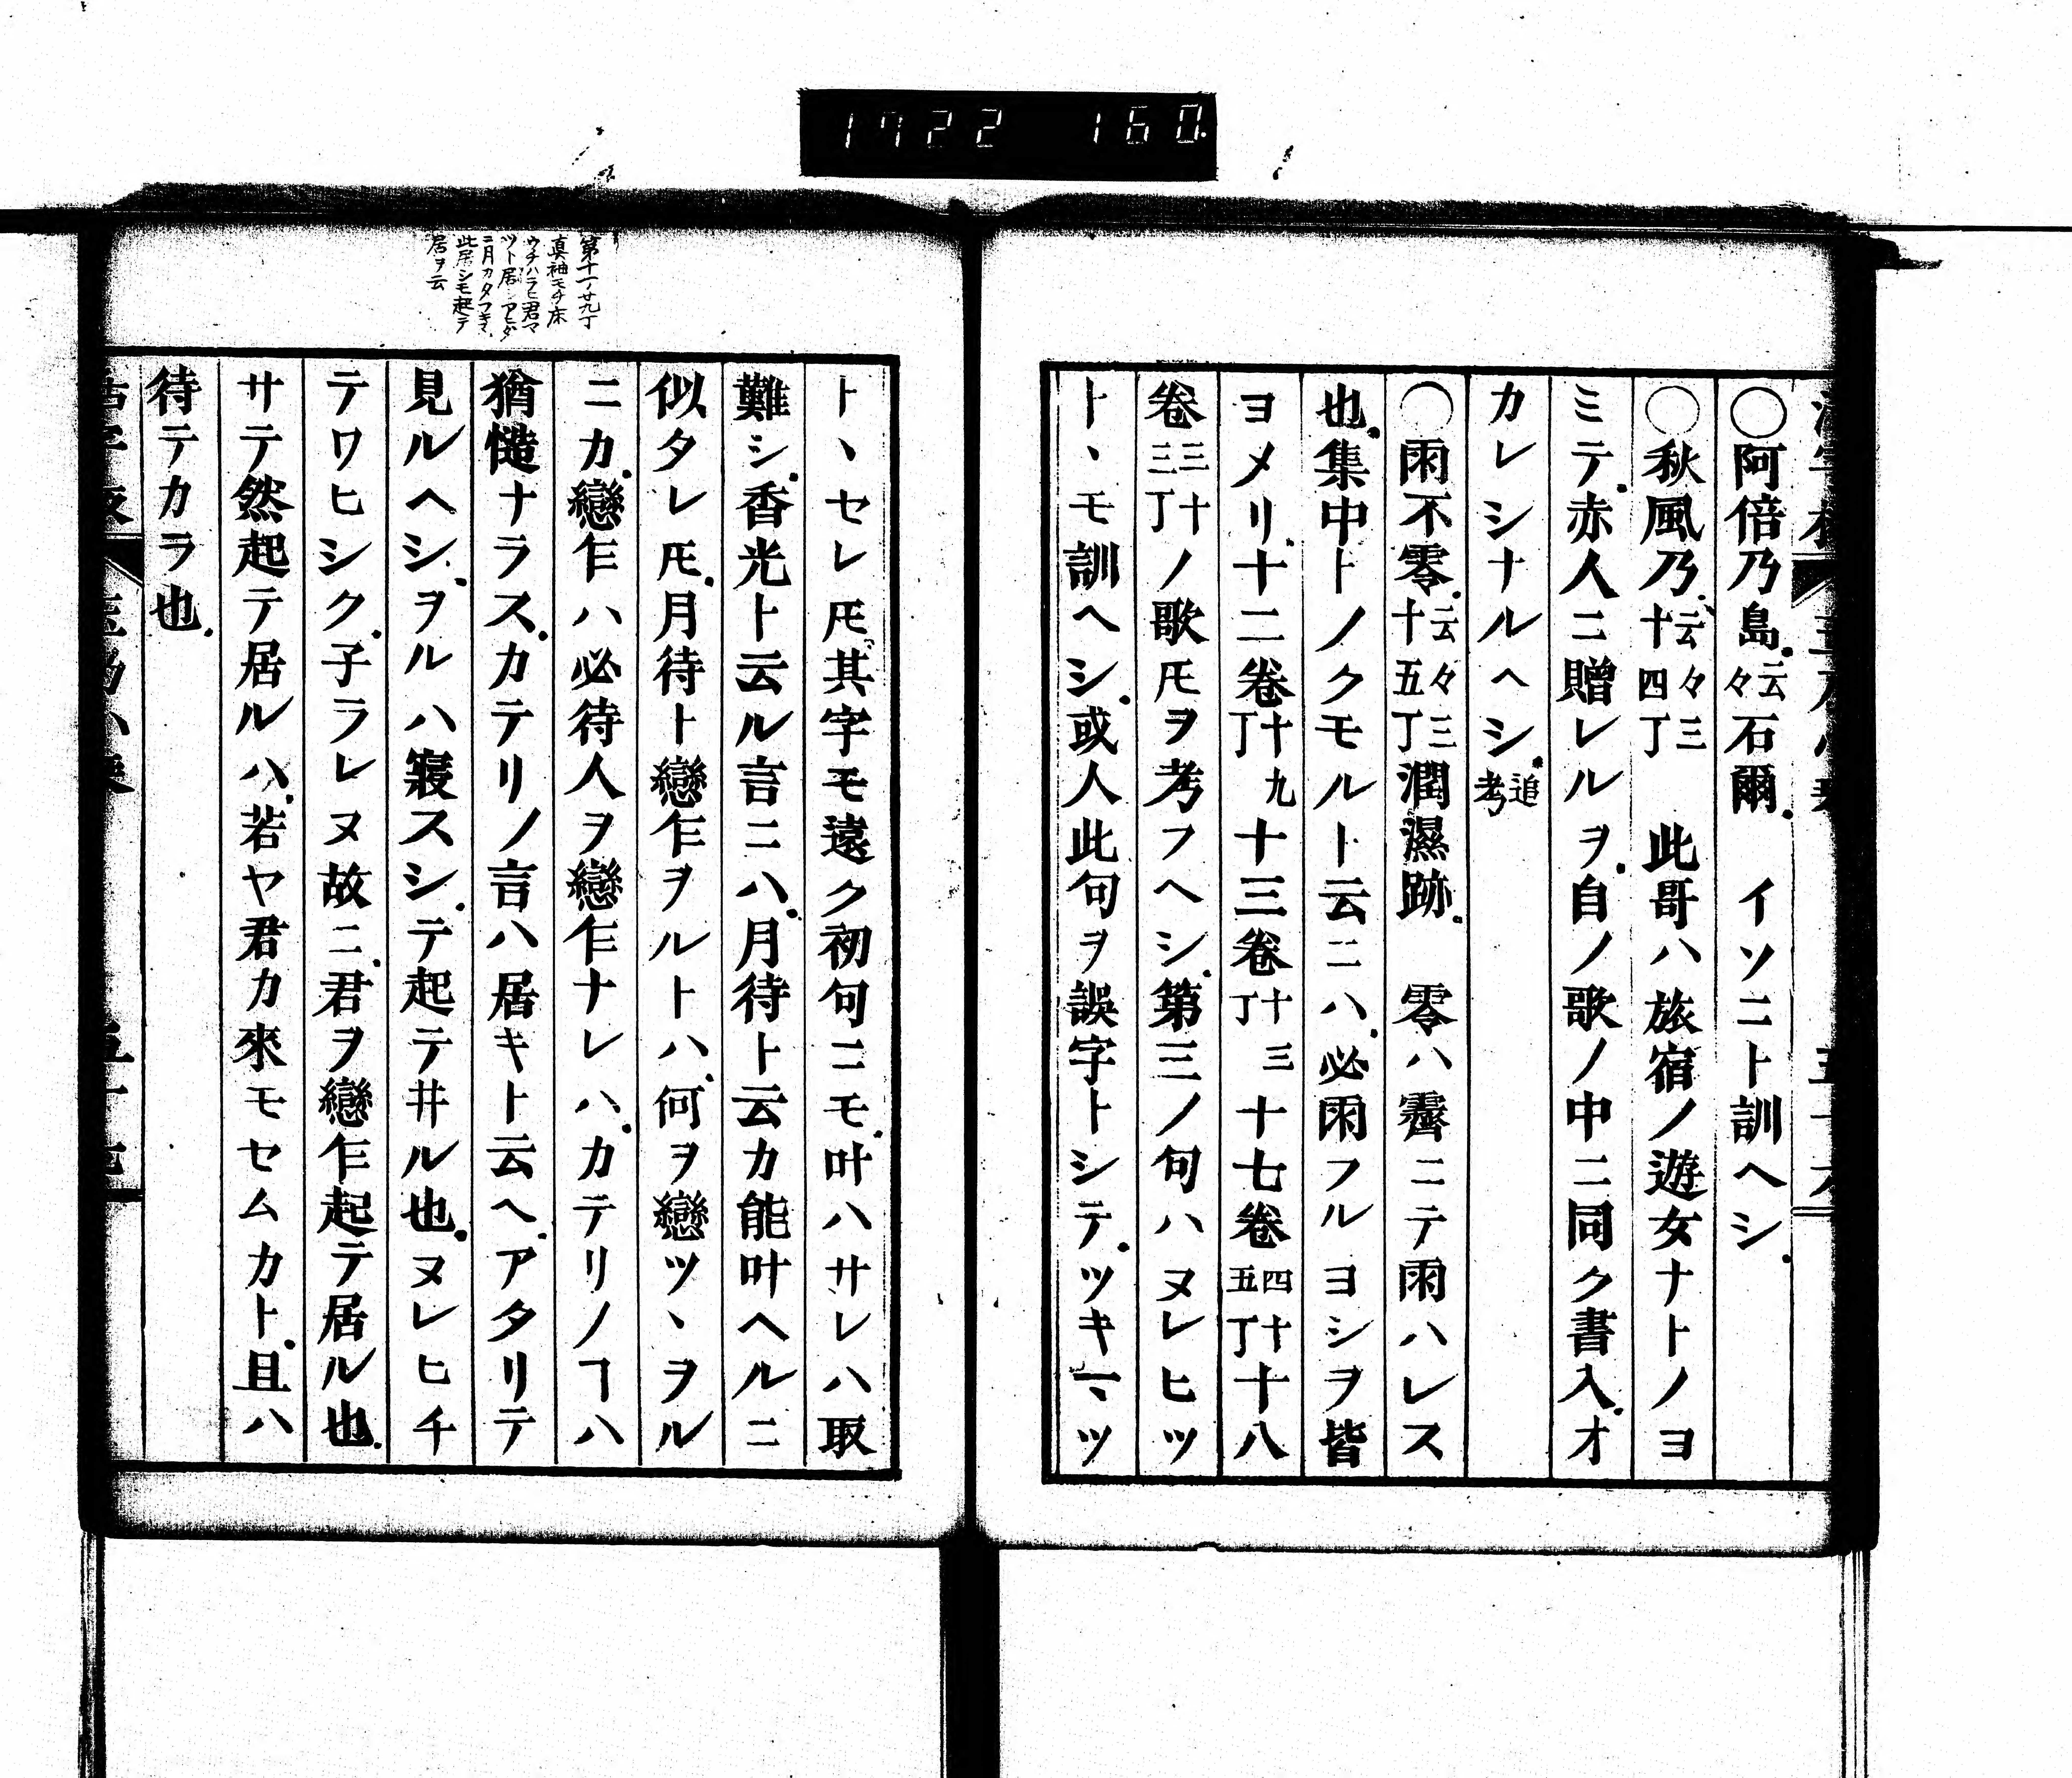 1722 160
〇阿倍乃島云々石爾 イソニト訓ヘシ
〇秋風乃云々三十四丁 此哥ハ旅宿ノ遊女ナトノヨ
ミテ赤人ニ贈レルヲ自ノ歌ノ中ニ同ク書入オ
カレシナルヘシ追考
〇雨不零云々三十五丁潤濕跡 零ハ霽ニテ雨ハレス
也集中トノクモルト云ニハ必雨フルヨシヲ皆
ヨメリ十二卷十九丁十三卷十三丁十七卷四十五丁十八
卷三十三丁ノ歌𪜈ヲ考フヘシ第三ノ句ハヌレヒツ
トヽモ訓ヘシ或人此句ヲ誤字トシテツキ
トヽセレ𪜈其字モ遠ク初句ニモ叶ハサレハ取
難シ香光ト云ル言ニハ月待ト云カ能叶ヘルニ
似タレ𪜈月待ト戀乍ヲルトハ何ヲ戀ツヽヲル
ニカ戀乍ハ必待人ヲ戀乍ナレハカテリノヿハ
猶慥ナラスカテリノ言ハ居キト云ヘアタリテ
見ルヘシヲルハ寢スシテ起テ井ル也ヌレヒチ
テワヒシク子ラレヌ故ニ君ヲ戀乍起テ居ル也
サテ然起テ居ルハ若ヤ君カ來モセムカト且ハ
待テカラ也
第十一ノ廿九丁
真袖モチ床
ウチハラヒ君マ
ツト居
ニ月カタフキヌ
此居シモ起テ
居ヲ云